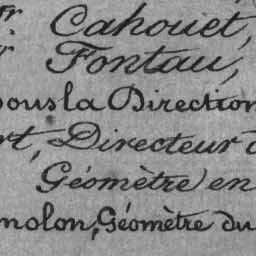 Fr. Cahouet,
Fontau,
sous la Direction
rt, Directeur d
Géomètre en
nolon, Géomètre du